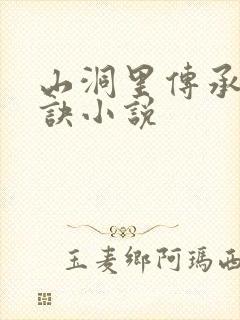 山洞里傳承
訣小说
玉麦鄉阿瑪西